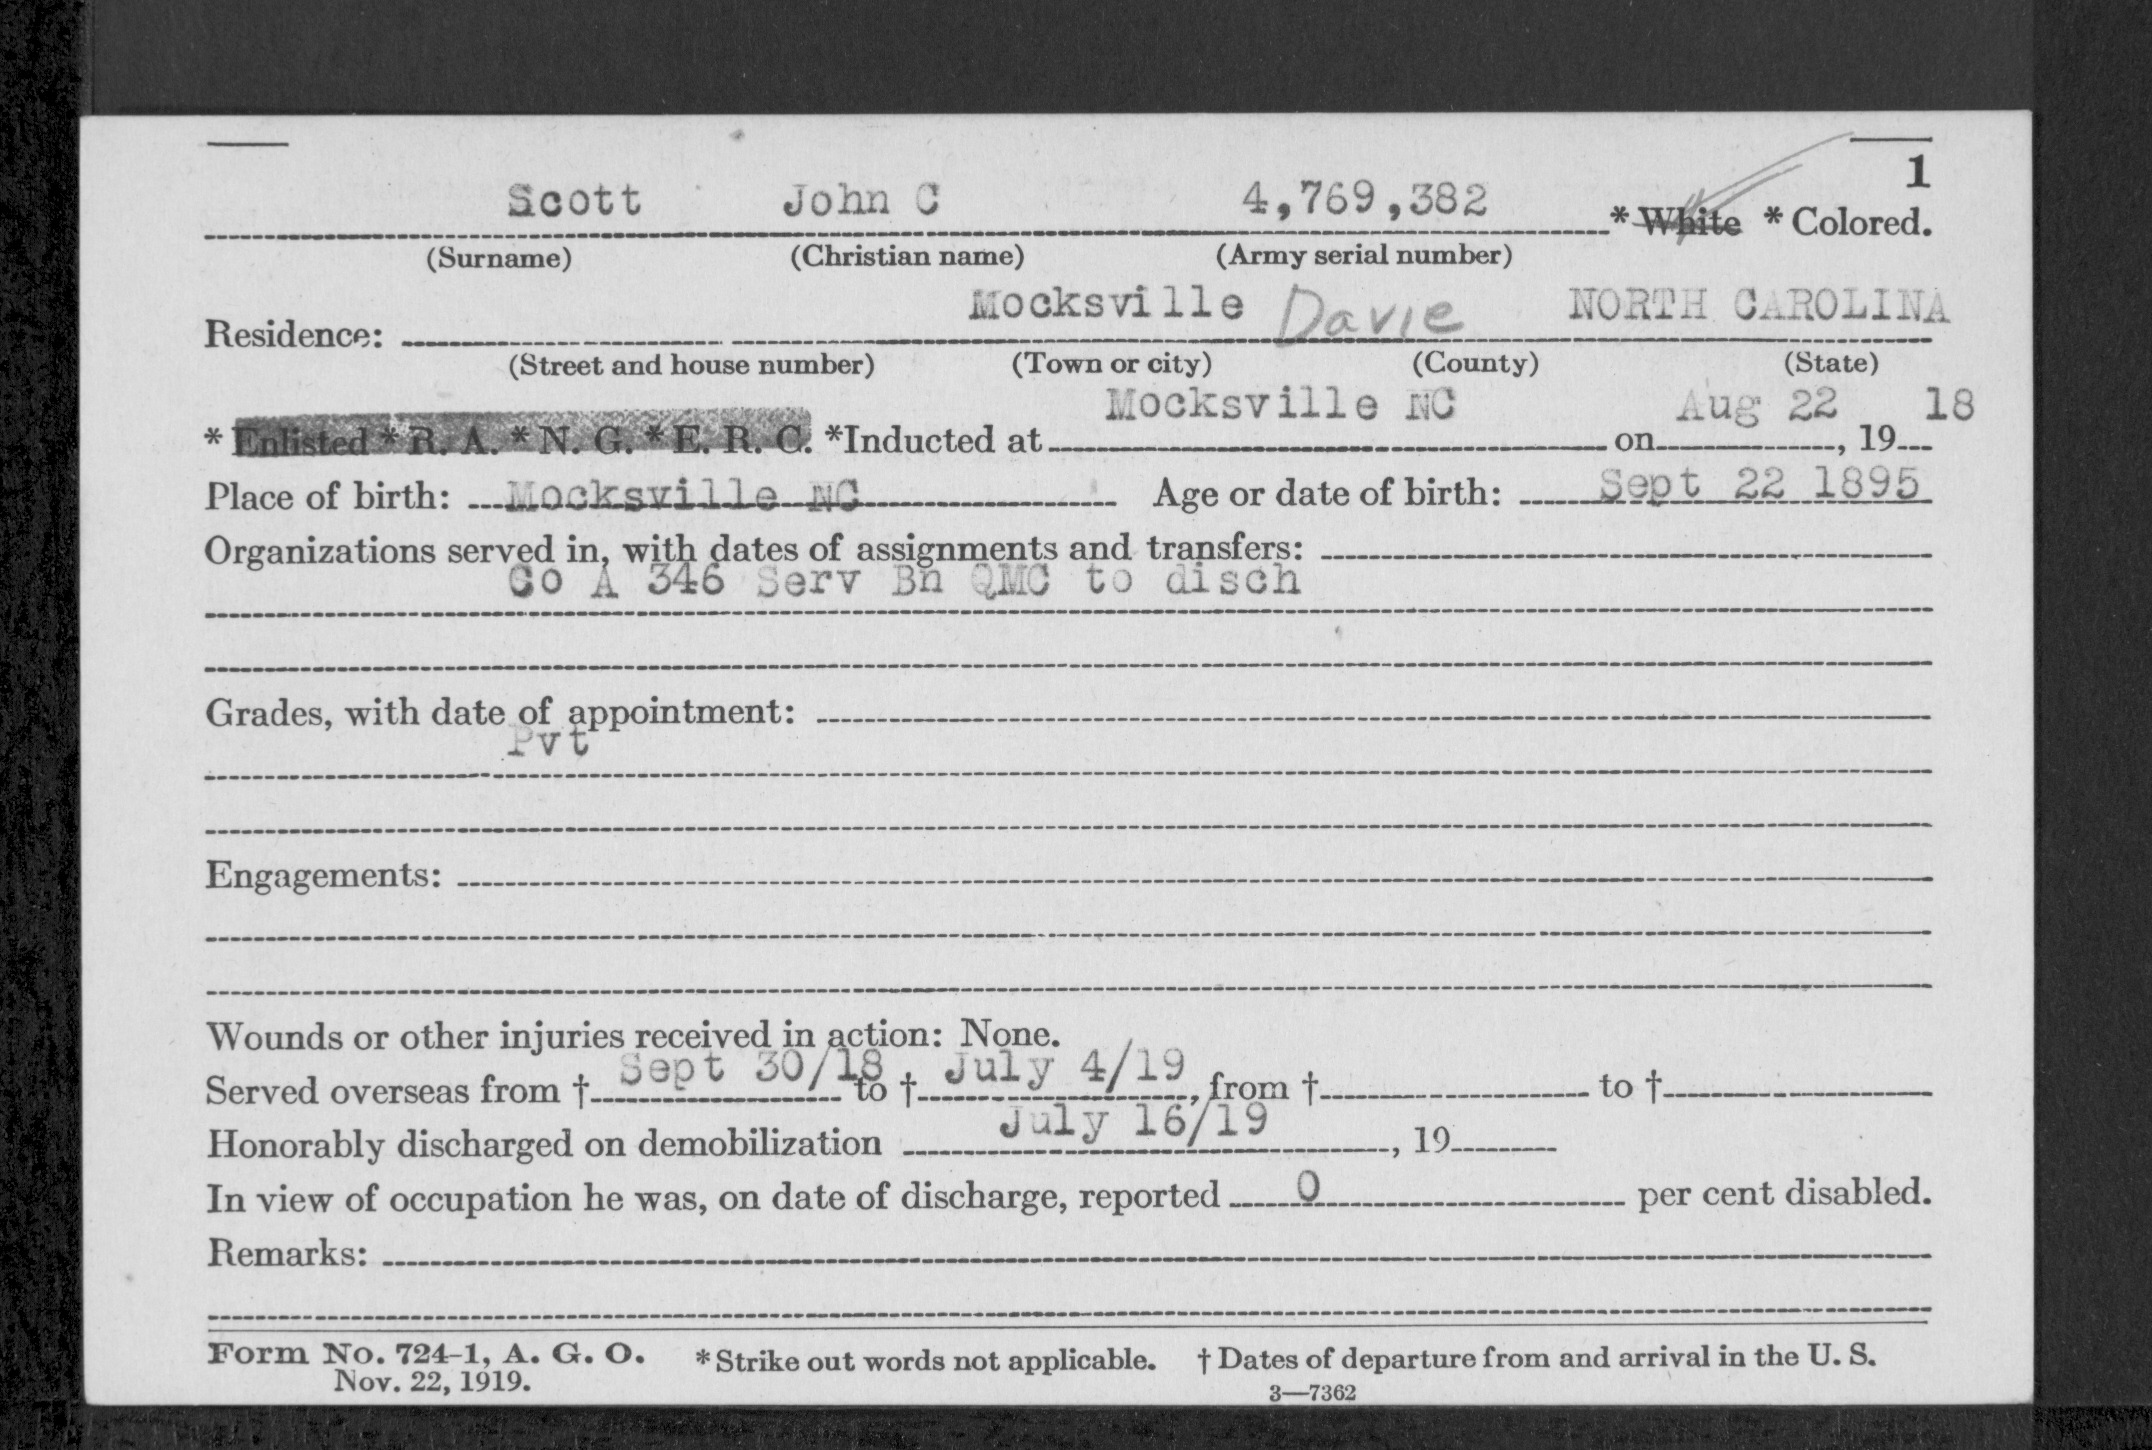 1
Scott John C 4,769,382 * White * Colored.
(Surname) (Christian name) (Army serial number)
Mocksville Davie NORTH CAROLINA
Residence:
(Street and house number) (Town or city) (County) (State)
Mocksville NC Aug 22 18
* Enlisted * R. A. * N. G. * E. R. C. *Inducted at on , 19
Place of birth: Mocksville NC Age or date of birth: Sept 22 1895
Organizations served in, with dates of assignments and transfers:
Co A 346 Serv Bn QMC to disch
Grades, with date of appointment:
Pvt
Engagements:
Wounds or other injuries received in action: None.
Served overseas from † Sept 30/18 to † July 4/19, from † to †
Honorably discharged on demobilization July 16/19 , 19
In view of occupation he was, on date of discharge, reported 0 per cent disabled.
Remarks:
Form No. 724-1, A. G. O. * Strike out words not applicable. † Dates of departure from and arrival in the U. S.
Nov. 22, 1919. 3—7362